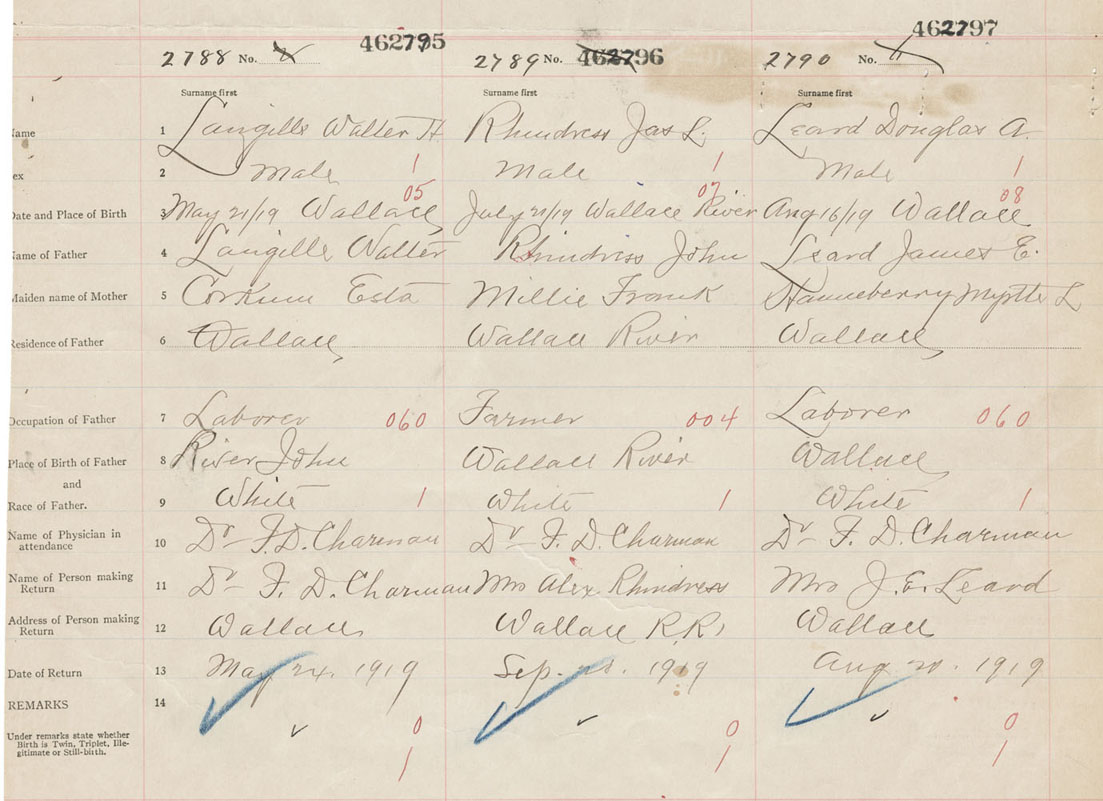 462795 462796 462797
2788 No. 2789 No. 2790 No.
Surname first Surname first Surname first
Name 1 Langille Walter H. Rhindress Jas L. Leard Douglas A.
Sex 2 Male 1 Male 1 Male 1
05 07 08
Date and Place of Birth 3 May 21/19 Wallace July 21/19 Wallace River Aug 16/19 Wallace
Name of Father 4 Langille Walter Rhindress John Leard James E.
Maiden name of Mother 5 Corkum Esta Millie Frank Stanneberry Myrtle L
Residence of Father 6 Wallace Wallace River Wallace
Occupation of Father 7 Laborer 060 Farmer 004 Laborer 060
Place of Birth of Father 8 River John Wallace River Wallace
and
Race of Father. 9 White 1 White 1 White 1
Name of Physician in
attendance 10 Dr F. D. Charman Dr F. D. Charman Dr F. D. Charman
Name of Person making
Return 11 Dr F. D. Charman Mrs Alex. Rhindress Mrs J. E. Leard
Address of Person making
Return 12 Wallace Wallace R.R. Wallace
Date of Return 13 May 24. 1919 Sep. 1919 Aug 20. 1919
REMARKS 14
Under remarks state whether 0 0 0
Birth is Twin, Triplet, Ille-
gitimate or Still-birth. 1 1 1